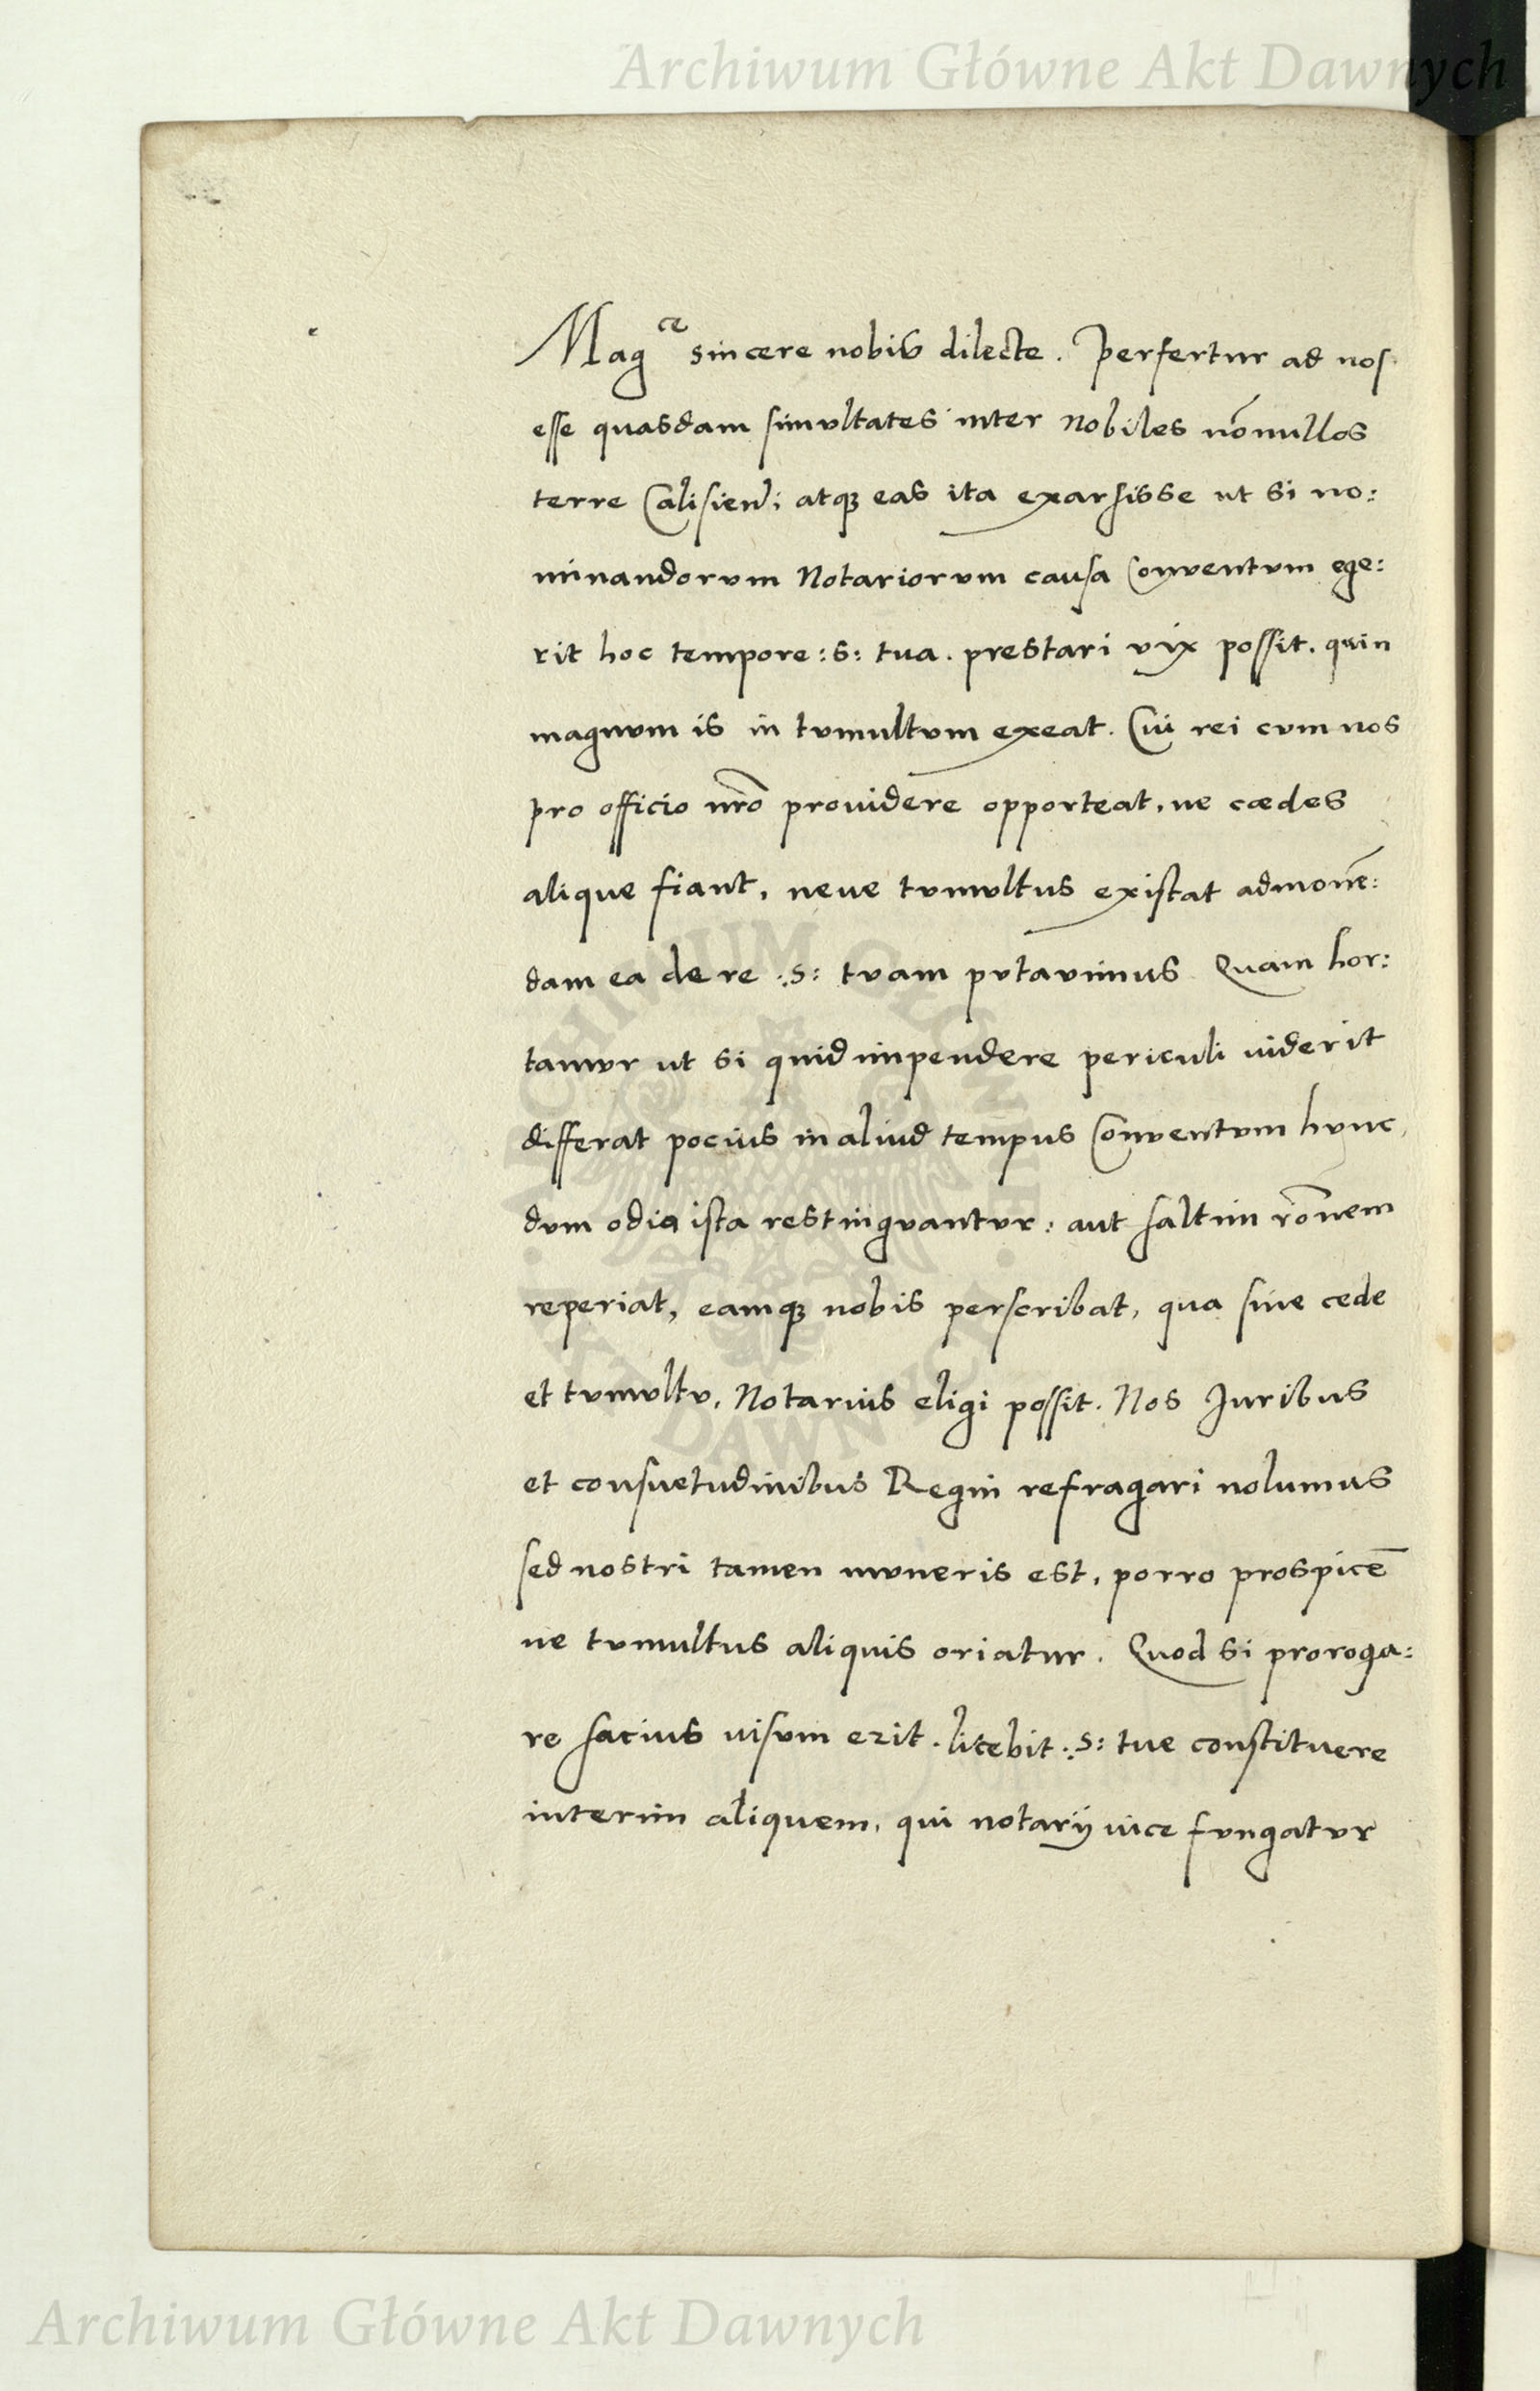 Archiwum Główne Akt Dawnych
Mag<sup>ce</sup> sincere nobis dilecte. Perfertur ad nos
esse quasdam simultates inter Nobiles nōnullos
terre Calisien: atqꝫ eas ita exarsisse ut si no:
minandorum Notariorum causa Conventum ege:
rit hoc tempore :S: tua. prestari vix possit. quin
magnum is in tumultum exeat. Cui rei cum nos
pro officio nr̄o providere opporteat, ne cædes
alique fiant, neue tumultus existat admonē:
dam ea de re :S: tuam putauimus Quam hor:
tamur ut si quid impendere periculi uiderit
differat pocius in aliud tempus Conuentum hunc,
dum odia ista restinguantur: aut saltim rōnem
reperiat, eamqꝫ nobis perscribat, qua sine cede
et tumultu, Notarius eligi possit. Nos Juribus
et consuetudinibus Regni refragari nolumus
sed nostri tamen muneris est, porro prospicē
ne tumultus aliquis oriatur. Quod si proroga:
re sacius uisum erit. licebit :S: tue constituere
interim aliquem, qui notarij uice fungatur
ARCHIWUM GŁÓWNE AKT DAWNYCH
Archiwum Główne Akt Dawnych